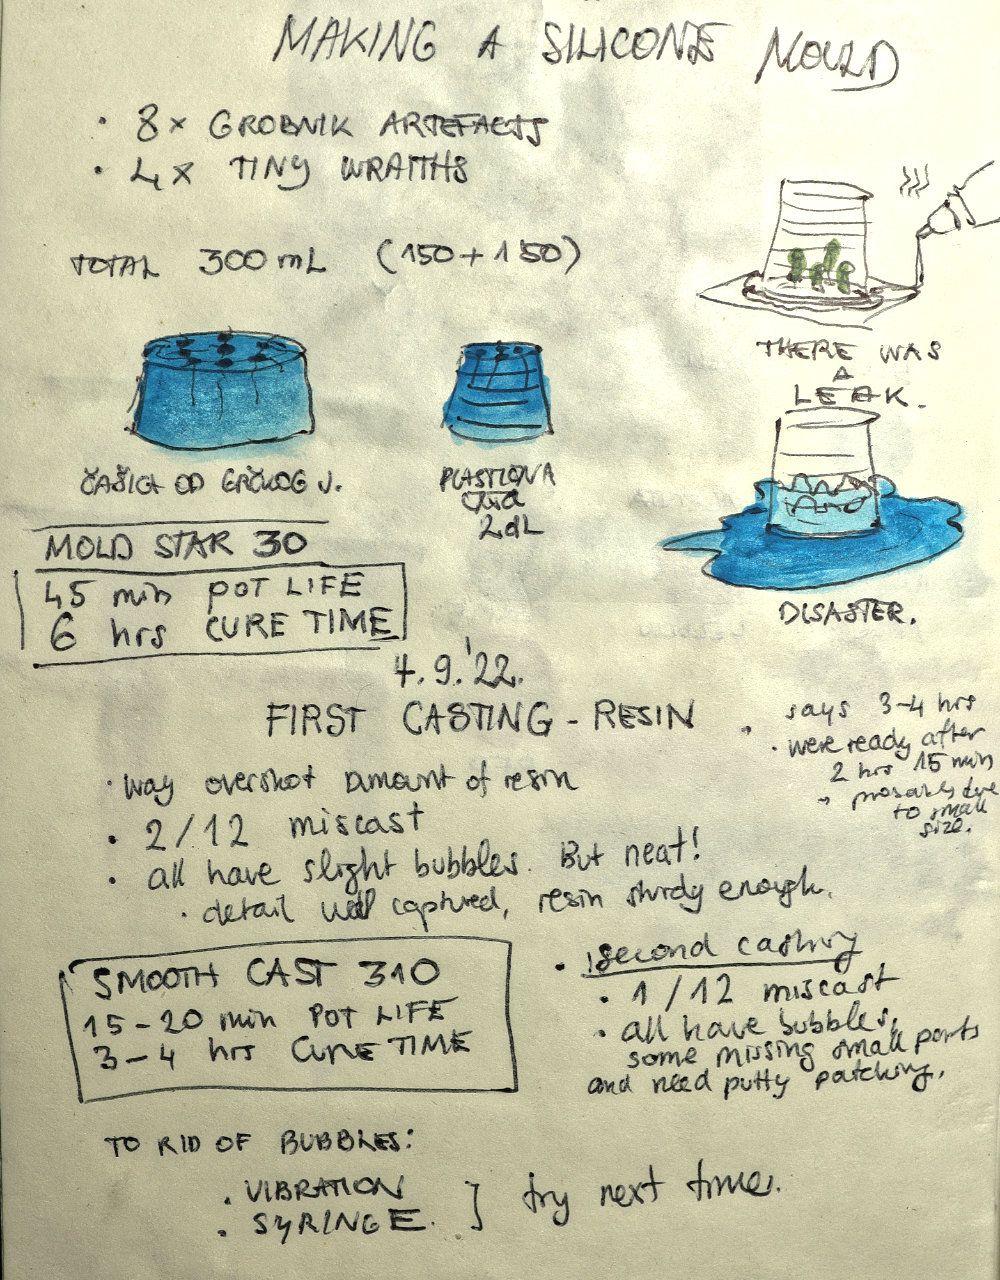 MAKING A SILICONE MOULD
• 8x GROBNIK ARTEFACTS
• 4x TINY WRAITHS
TOTAL 300 mL (150 + 150)
THERE WAS
A
LEAK.
ČAŠICA OD GRČKOG J.
PLASTIČNA
čaša
2dL
DISASTER.
MOLD STAR 30
45 min POT LIFE
6 hrs CURE TIME
4.9.'22.
FIRST CASTING - RESIN
• says 3-4 hrs
• were ready after
2 hrs 15 min
→ probably due
to small
size.
• way overshot amount of resin
• 2/12 miscast
• all have slight bubbles. But neat!
• detail well captured, resin sturdy enough.
SMOOTH CAST 310
15-20 min POT LIFE
3-4 hrs CURE TIME
• second casting
• 1/12 miscast
• all have bubbles,
some missing small parts
and need putty patching.
TO RID OF BUBBLES:
• VIBRATION
• SYRINGE.
] try next time.